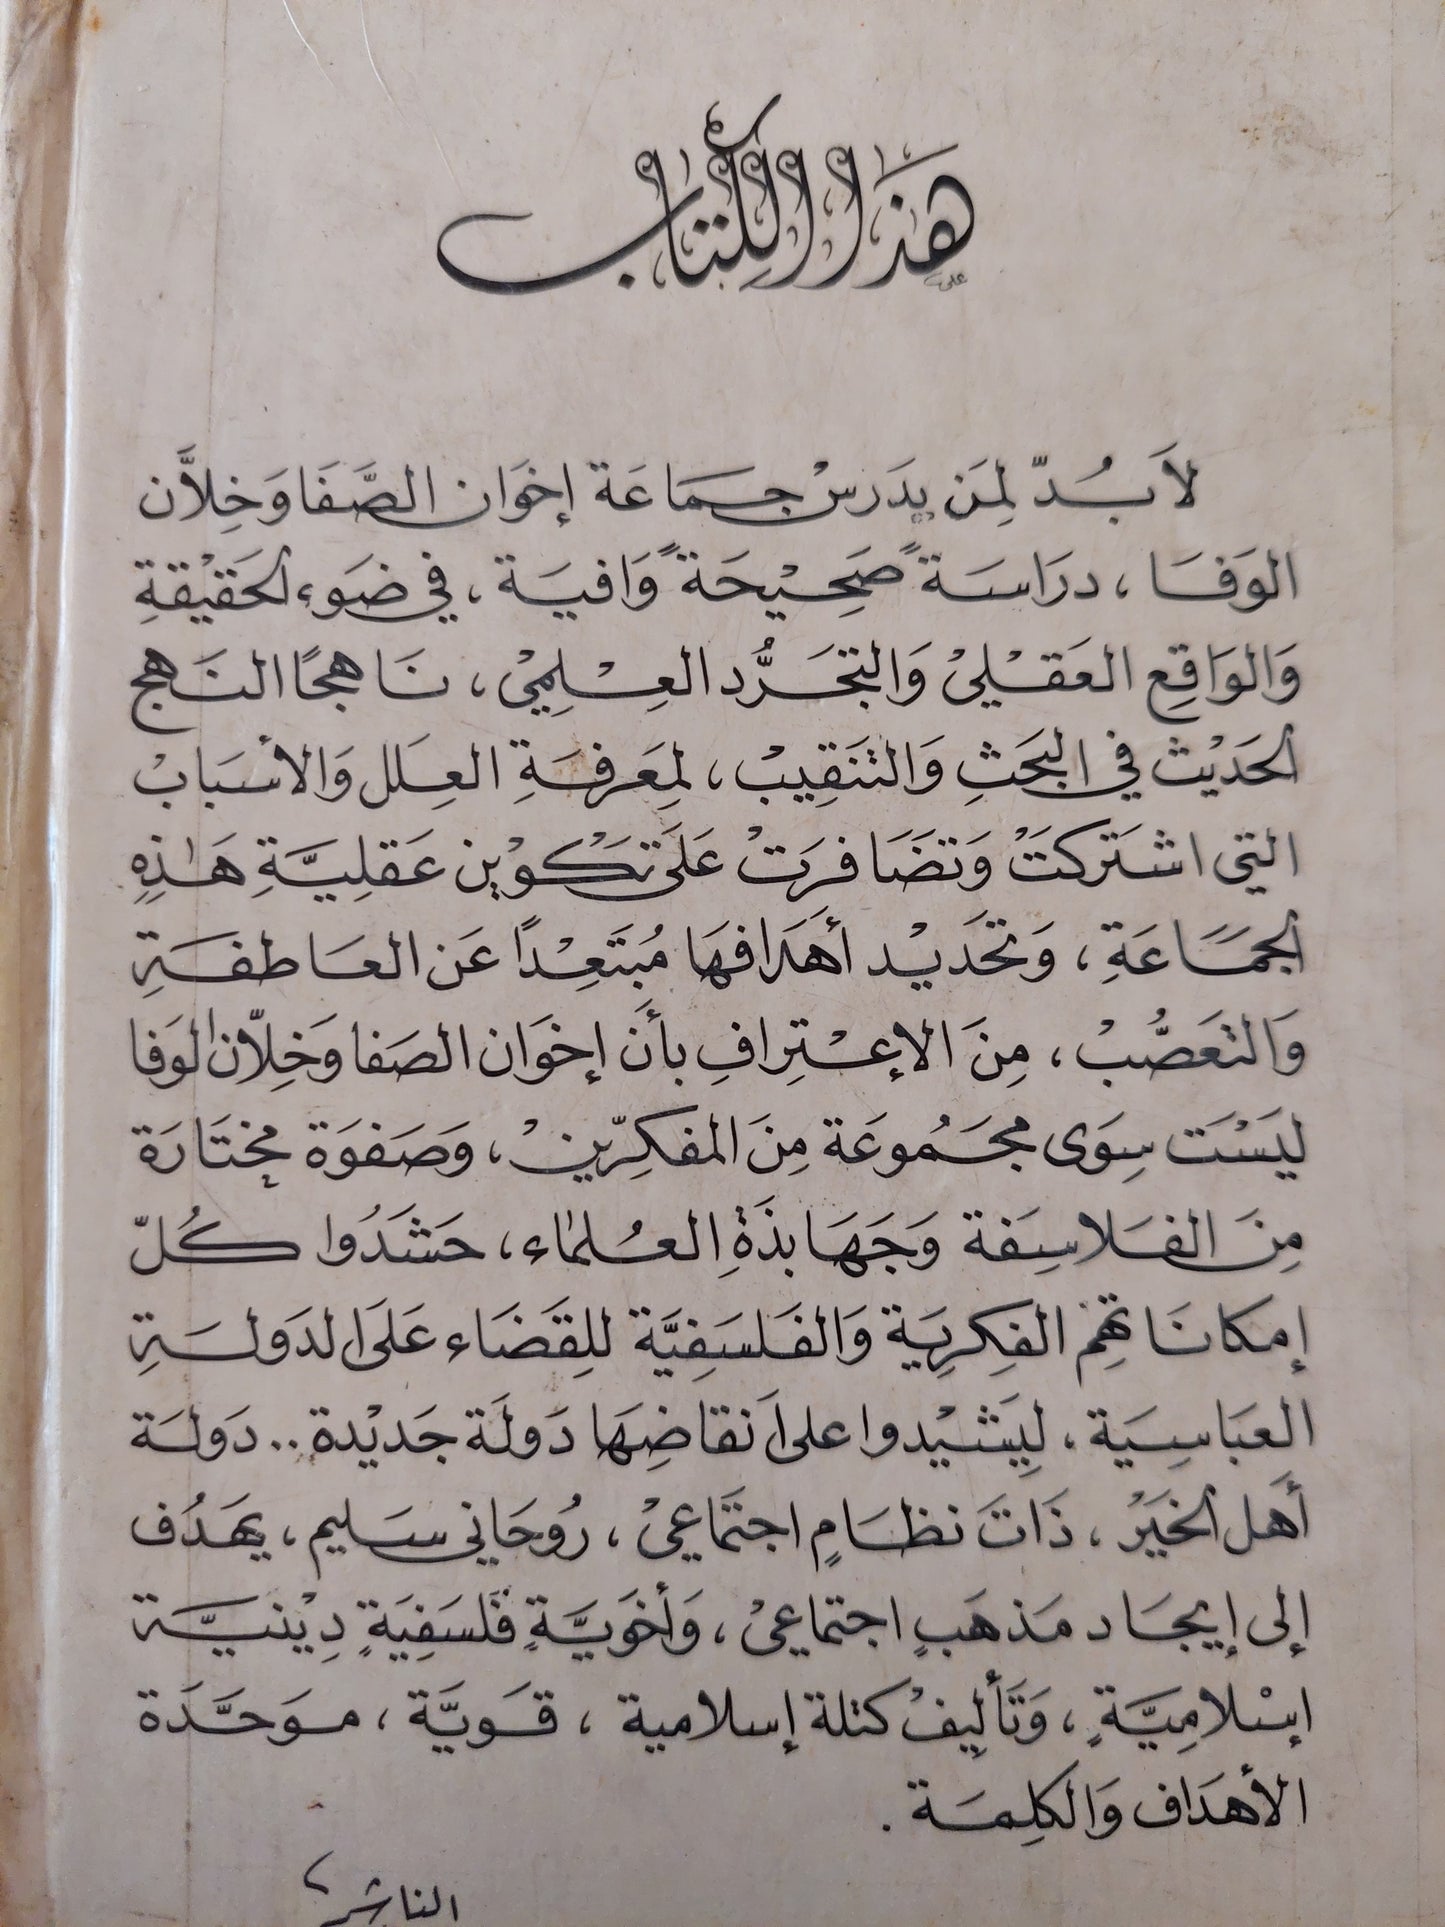 هَذَا الْكِتَابُ
لاَبُدّ لِمَن يدَرسْ جـمَاعَة إخوَان الصَّفَا وَخِلاَّن
الوَفَا ، درَاسَة ً صَحِيْحَة ً وَافيَة ، في ضَوَء الحَقيْقةِ
وَالوَاقِعِ العَقـْليْ وَالتجَرُّد العِـلِمِيْ ، نَاهجًا النَهج
الحَديْث في البَحَثِ وَالتنَقِيبْ ، لمِعَرفَةِ العِلَل وَالأسْبَابْ
التي اشتَركتَ وَتضَافرَتْ عَلَى تكَوْين عَقلِيَّةِ هَـٰذِهِ
الجَمَاعَةِ ، وَتحَديْد أهَدافهَا مُبتَعِدْاً عَن العَاطفَةِ
وَالتَعَصُّبْ ، مِنَ الإعـْتِرافِ بأنَ إخوَان الصَفا وَخِلاّن الوَفا
ليَسْتَ سِوَى مجَمُوعَة مِنَ المفكِرّينْ ، وَصَفوَة مختَارَة
مِنَ الفَلاسِفة وَجَهَابذَةِ العُـلمَاء ، حَشَدُوا كُلّ
إمكانَاتهِمْ الفِكرِيَة وَالفَلسَفِيَّة للِقَضَاء عَلَى الدَولـَةِ
العَبَاسِيَة ، لِيَشْيدوا على أنَقاضِهَا دَولَة جَديْدة .. دَولـَة
أَهَل الخيَرْ ، ذَاتَ نظَامٍ اجتَمَاعيْ ، رُوحَاني سَليم ، يهَدُف
إلى إيجَاد مَذهَبٍ اجتماعيْ ، وَأخوَيَّةٍ فلَسَفِيَةٍ دِيْنيَّة
إسْلامِيَّةٍ ، وَتَأليِفْ كتلة إسلامية ، قـَويَّة ، موَحَّدَة
الأهدَاف وَالكلِمـَة .
الناشر